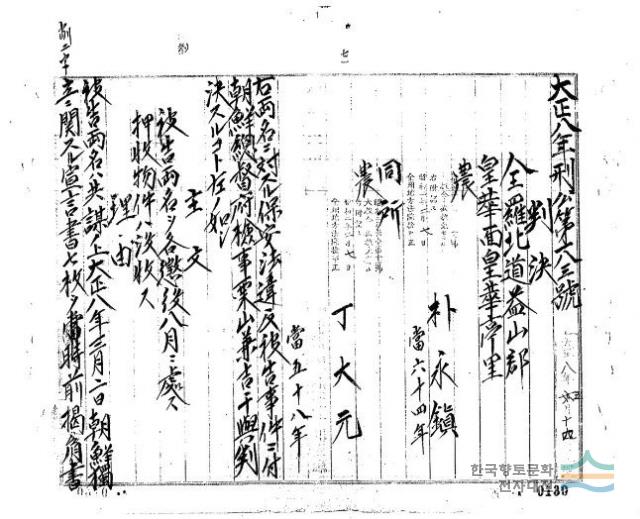 大正八年刑公第六八三號
判決
全羅北道益山郡
皇華面皇華亭里
農
朴永鎭
當六十四年
同所
農
丁大元
當五十八年
右兩名ニ對スル保安法違反被告事件ニ付
朝鮮總督府檢事栗山兼吉干與判
決スルコト左ノ如シ
主文
被告兩名ヲ各懲役八月ニ處ス
押收物件ハ沒收ス
理由
被告兩名ハ共謀ノ上大正八年三月二日朝鮮獨
立ニ關スル宣言書七枚ヲ當時前揭肩書
한국향토문화
전자대전
0130